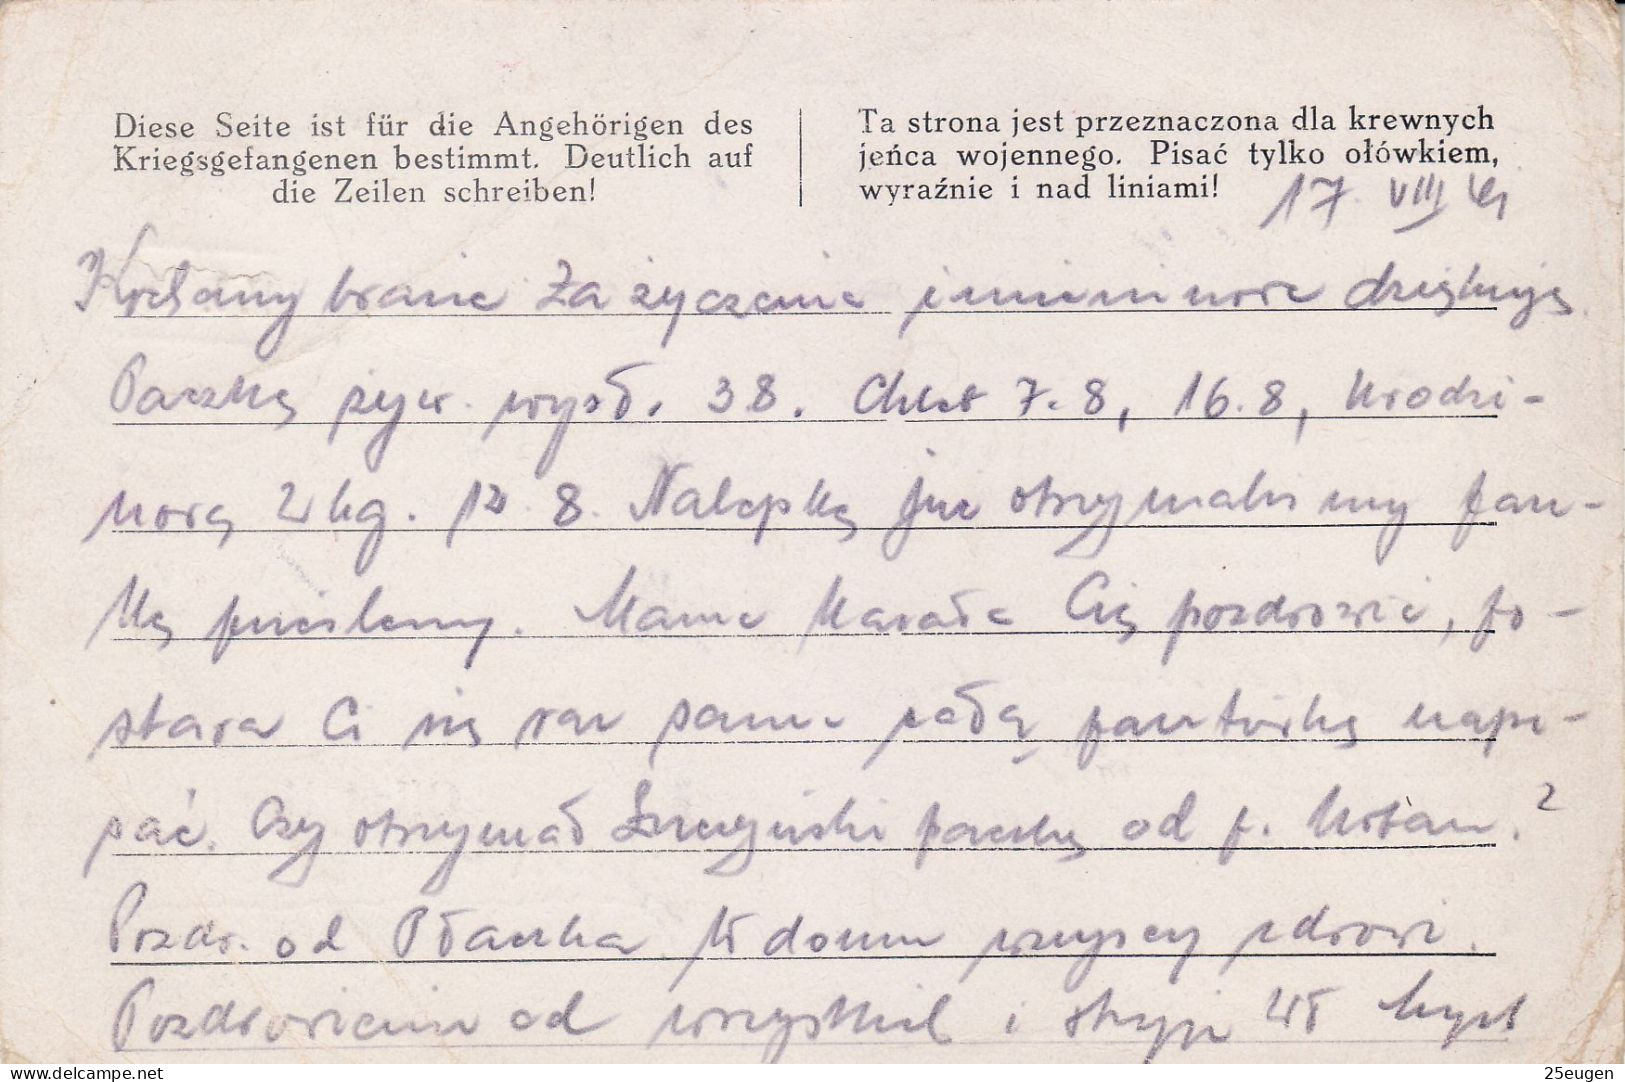 Diese Seite ist für die Angehörigen des
Kriegsgefangenen bestimmt. Deutlich auf
die Zeilen schreiben!
Ta strona jest przeznaczona dla krewnych
jeńca wojennego. Pisać tylko ołówkiem,
wyraźnie i nad liniami!
17. VIII 41
Kochany bracie Za życzenie imieninowe dziękuję.
Paczkę żyw. wysł. 3 8. Chleb 7.8, 16.8, Urodzi-
nową 2 kg. 12.8. Nalepkę już otrzymaliśmy
prześlemy. Mama kazała Cię pozdrowić, po-
stara Ci się sama całą kartkę napi-
sać. Czy otrzymał paczkę od p. ?
Pozdr. od Płaczka W domu wszyscy zdrowi.
Pozdrowienia od wszystkich i
25eugen
delcampe.net